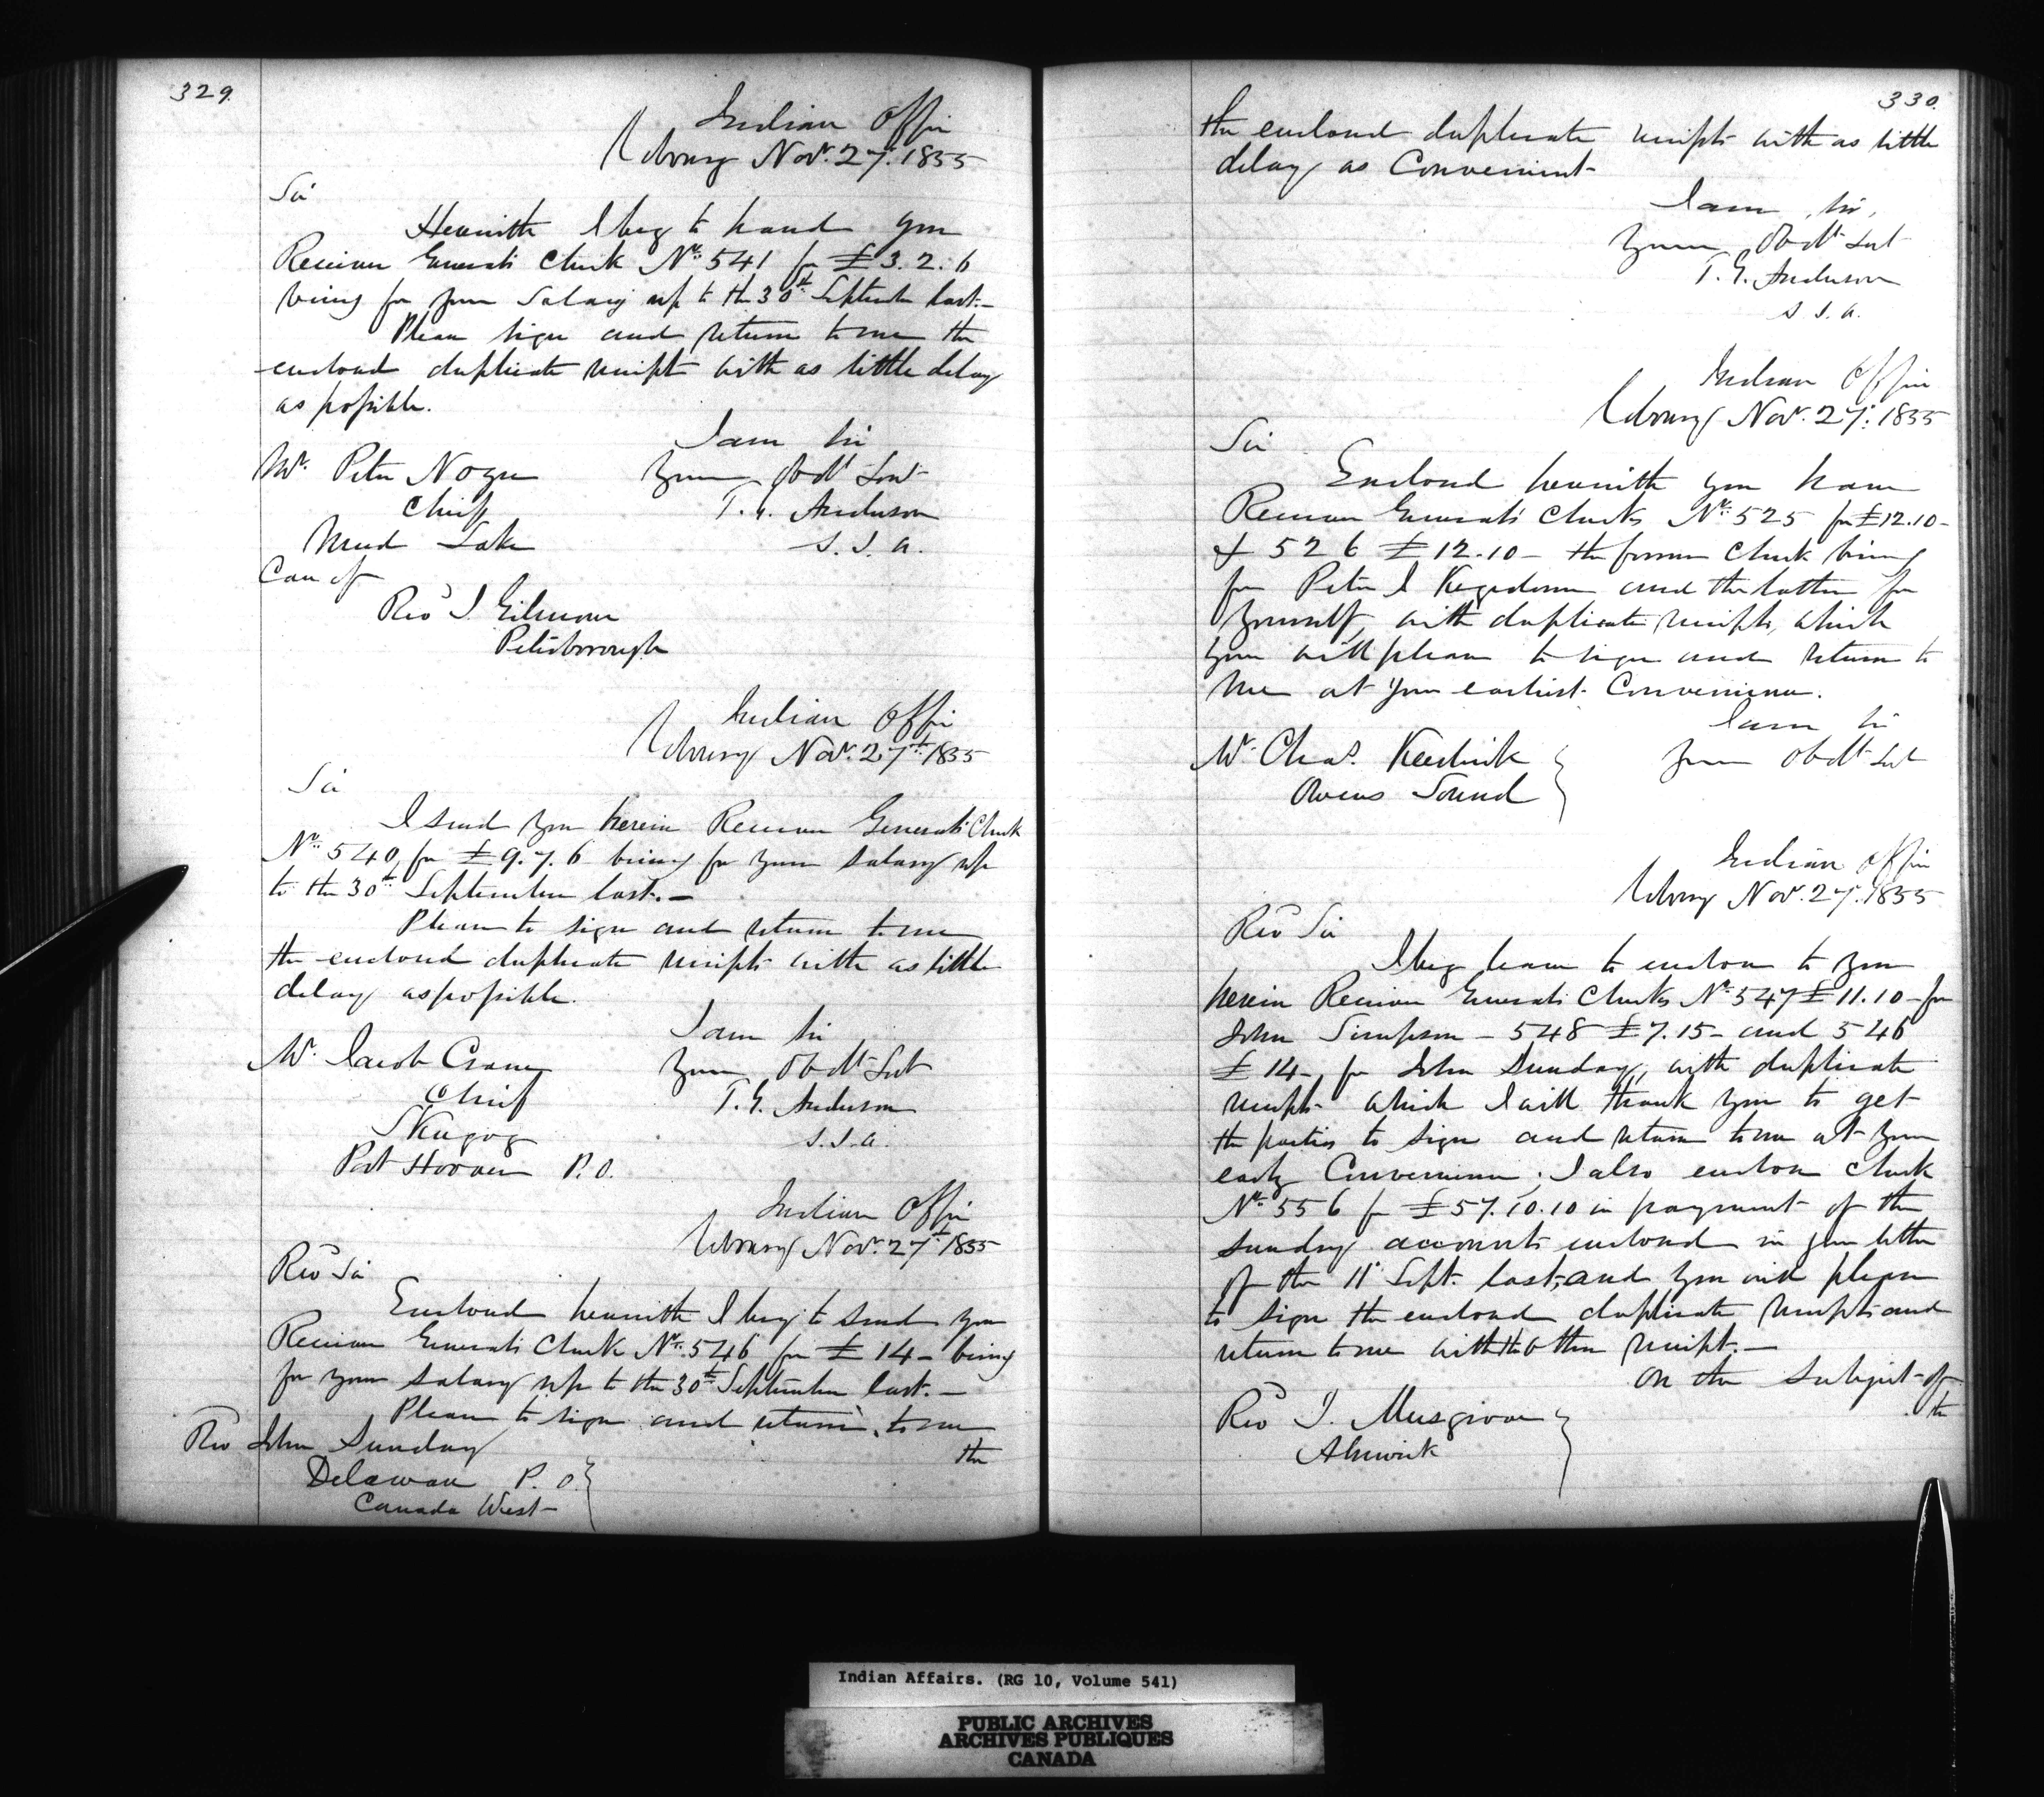 329.
Indian Office
Cobourg Nov. 27. 1855
Sir
Herewith I beg to hand you
Receiver Generals Check No. 541 for £3.2.6
being for your Salary up to the 30th September last.-
Please sign and return to me the
enclosed duplicate receipts with as little delay
as possible.
I am Sir
Your Obdt Servt
T. G. Anderson
S. I. A.
Mr. Peter Nogee
Chief
Mud Lake
Care of
Revd J. Gilmour
Peterborough
Indian Office
Cobourg Nov. 27th 1855
Sir
I send you herein Receiver Generals Check
No. 540, for £9.7.6 being for your salary up
to the 30th September last.-
Please to sign and return to me
the enclosed duplicate receipts with as little
delay as possible.
I am Sir
Your Obdt Sevt
T. G. Anderson
S. I. A.
Mr. Jacob Crane
Chief
Skugog
Port Hoover P.O.
Indian Office
Cobourg Nov. 27th 1855
Revd Sir
Enclosed herewith I beg to send you
Receiver Generals Check No. 546 for £14- being
for your salary up to the 30th September last.-
Please to sign and return to me
the
Revd John Sunday
Delaware P. O.
Canada West
330.
the enclosed duplicate receipts with as little
delay as Convenient
I am Sir,
Your Obdt Sevt
T. G. Anderson
S. I. A.
Indian Office
Cobourg Nov. 27. 1855
Sir
Enclosed herewith you have
Receiver Generals Checks No. 525 for £12.10-
& 526 £12.10- the former Check being
for Peter J Kegedonce and the latter for
yourself, with duplicate receipts, which
you will please to sign and return to
me at your earliest Convenience.
I am Sir
Your Obdt Sevt
Mr. Chas. Keeshick
Owens Sound
Indian Office
Cobourg Nov. 27. 1855
Revd Sir
I beg leave to enclose to you
herein Receiver Generals Checks No. 547 £11.10- for
John Simpson - 548 £7.15- and 546
£14-, for John Sunday, with duplicate
receipts which I will thank you to get
the parties to sign and return to me at your
early Convenience; I also enclose Check
No. 556 for £57.10.10 in payment of the
sundry accounts enclosed in your letter
of the 11 Sept last, and you will please
to sign the enclosed duplicate receipts and
return to me with the other receipt.-
On the Subject of
the
Revd J. Musgrove
Alnwick
Indian Affairs. (RG 10, Volume 541)
PUBLIC ARCHIVES
ARCHIVES PUBLIQUES
CANADA